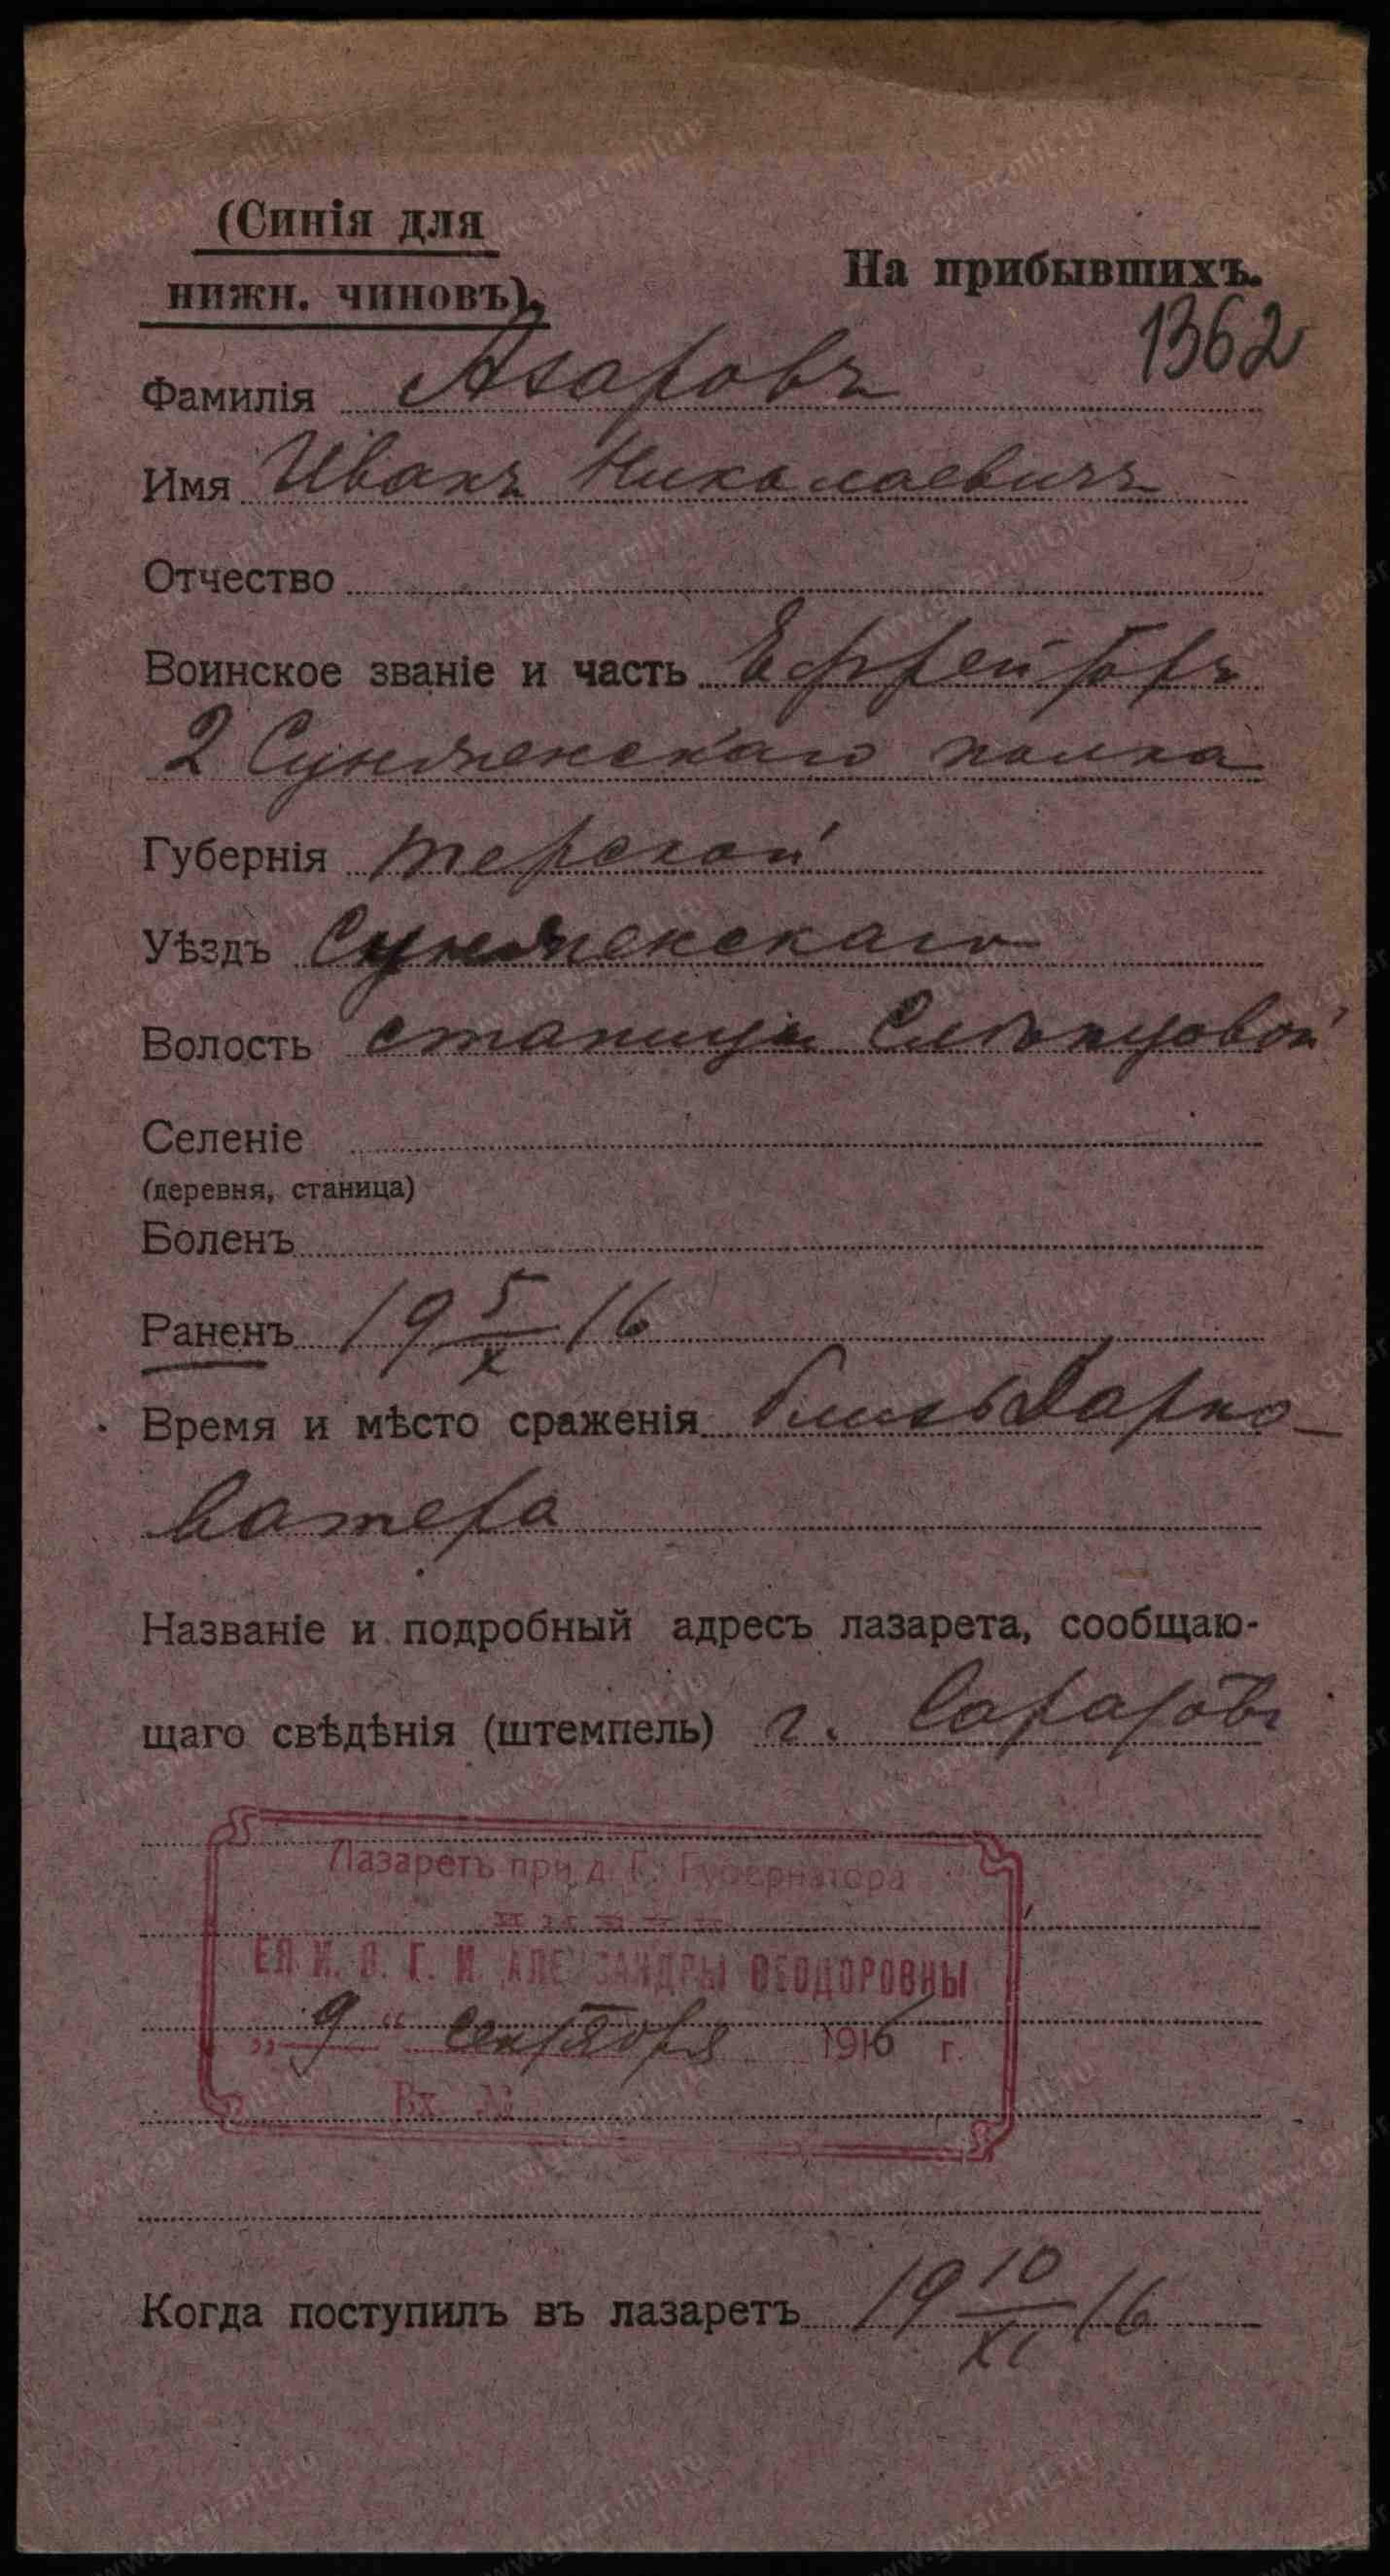 (Синія для
нижн. чиновъ).
На прибывшихъ.
1362
Фамилія Азаровъ
Имя Иванъ Николаевичъ
Отчество
Воинское званіе и часть Ефрейторъ
2 Сунженскаго полка
Губернія Терской
Уѣздъ Сунженскаго
Волость станицы Слѣпцовой
Селеніе
(деревня, станица)
Боленъ
Раненъ 19 5/X 16
Время и мѣсто сраженія близь Дарно-
ватера
Названіе и подробный адресъ лазарета, сообщаю-
щаго свѣдѣнія (штемпель) г. Саратовъ
Лазаретъ при д. Г. Губернатора
ЕЯ И. В. Г. И. АЛЕКСАНДРЫ ѲЕОДОРОВНЫ
„ 9 “ сентября 1916 г.
Вх. №
Когда поступилъ въ лазаретъ 19 10/XI 16